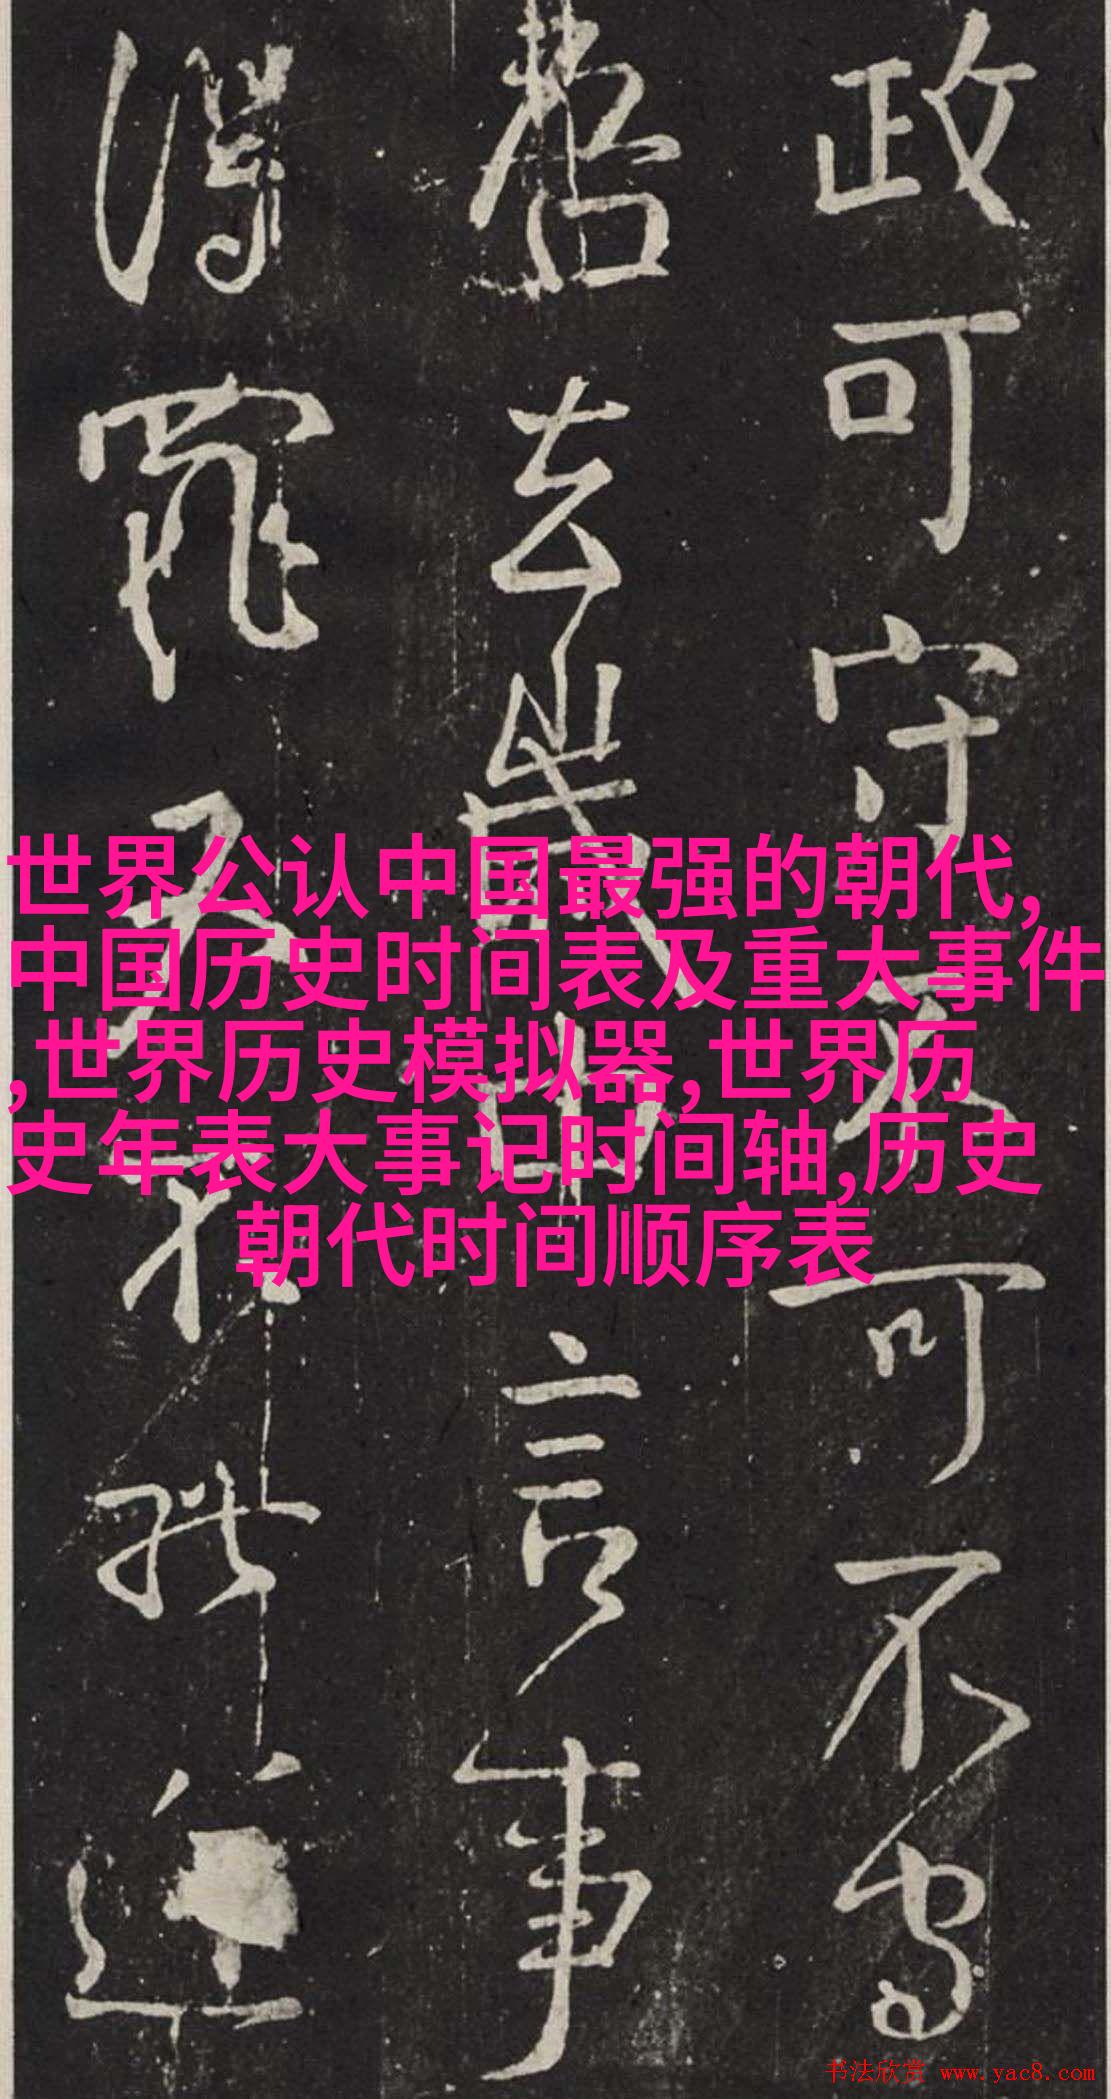 政可守不可不守
吾去歲中言事
得罪又不能逆
世界公认中国最强的朝代,
中国历史时间表及重大事件
,世界历史模拟器,世界历
史年表大事记时间轴,历史
朝代时间顺序表
书法欣赏 www.yac8.com